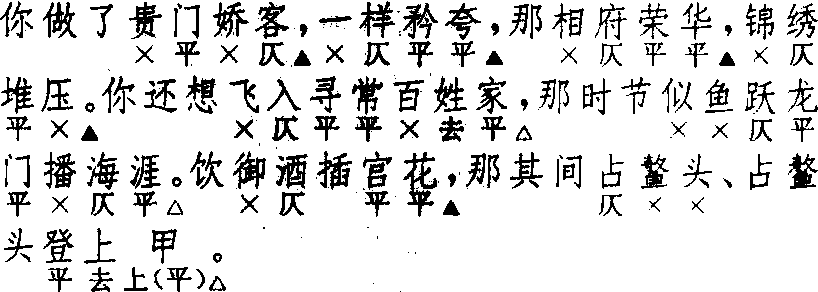 你做了贵门娇客，一样矜夸，那相府荣华，锦绣
×平×仄▲×仄平平▲ ×仄平平▲×仄
堆压。你还想飞入寻常百姓家，那时节似鱼跃龙
平×▲ ×仄平平×去平△ ××仄平
门播海涯。饮御酒插宫花，那其间占鳌头、占鳌
平×仄平△ ×仄 平平▲ 仄××
头登上甲。
平去上(平)△